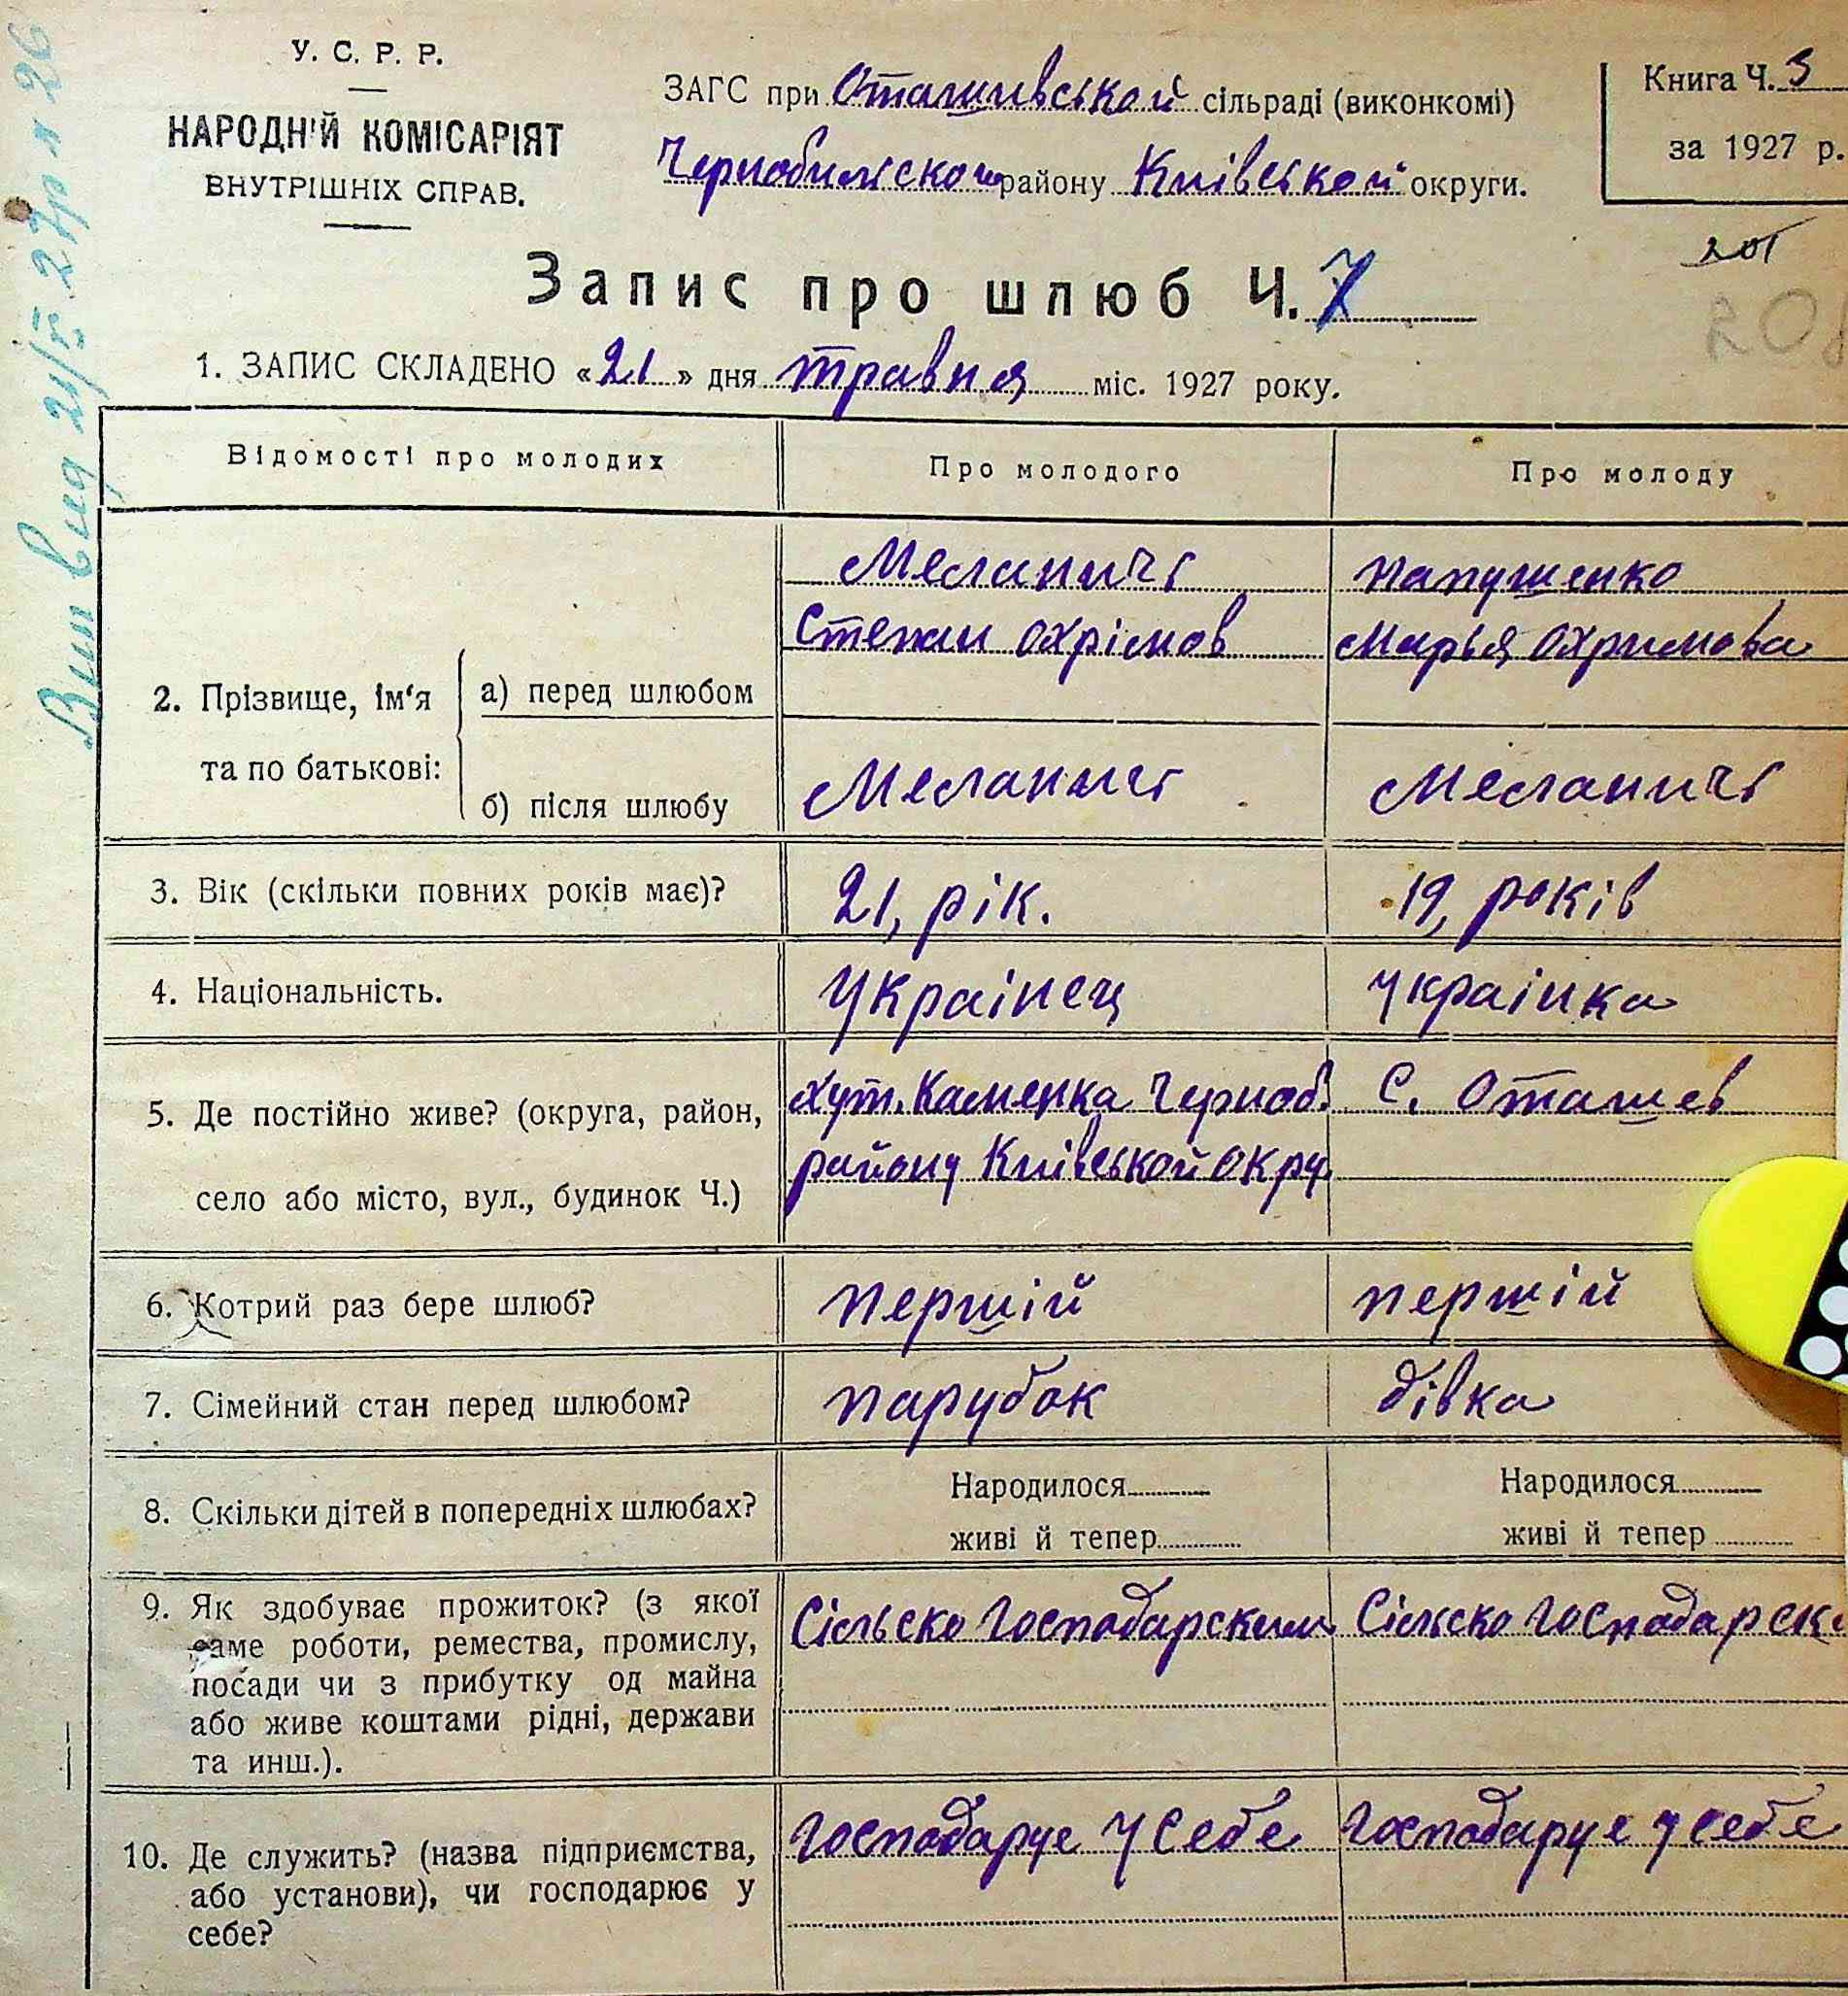 У. С. Р. Р.
НАРОДНІЙ КОМІСАРІЯТ
ВНУТРІШНІХ СПРАВ.
ЗАГС при Оташивській сільраді (виконкомі)
Чернобильского району Київськой округи.
Книга Ч. 3
за 1927 р.
201
Запис про шлюб Ч. 7
1. ЗАПИС СКЛАДЕНО «21» дня травня міс. 1927 року.
Відомості про молодих Про молодого Про молоду
2. Прізвище, ім'я та по батькові:
а) перед шлюбом
Меланич Папушенко
Степан Охрімов Марья Охримова
б) після шлюбу Меланич Меланич
3. Вік (скільки повних років має)? 21, рік. 19, років
4. Національність. Украінец Украінка
5. Де постійно живе? (округа, район, село або місто, вул., будинок Ч.)
хут. Каменка Черноб. С. Оташев
району Київськой окру
6. Котрий раз бере шлюб? першій першій
7. Сімейний стан перед шлюбом? парубок дівка
8. Скільки дітей в попередніх шлюбах? Народилося Народилося
живі й тепер живі й тепер
9. Як здобуває прожиток? (з якої
саме роботи, ремества, промислу,
посади чи з прибутку од майна
або живе коштами рідні, держави
та инш.).
Сільско Господарским Сільско Господарск
10. Де служить? (назва підприємства,
або установи), чи господарює у
себе?
Господаруе у себе Господаруе у себе